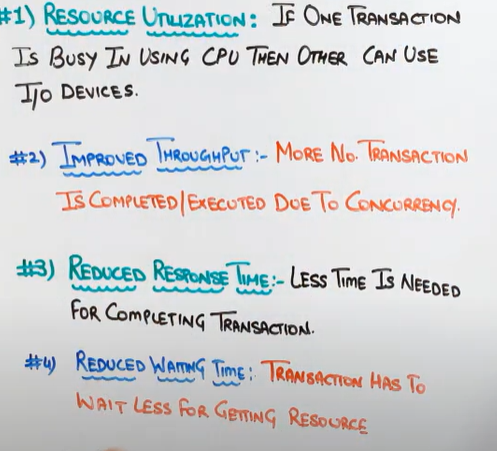 #1) RESOURCE UTILIZATION: IF ONE TRANSACTION
IS BUSY IN USING CPU THEN OTHER CAN USE
I/O DEVICES.
#2) IMPROVED THROUGHPUT:- MORE NO. TRANSACTION
IS COMPLETED/EXECUTED DUE TO CONCURRENCY.
#3) REDUCED RESPONSE TIME:- LESS TIME IS NEEDED
FOR COMPLETING TRANSACTION.
#4) REDUCED WAITING TIME: TRANSACTION HAS TO
WAIT LESS FOR GETTING RESOURCE